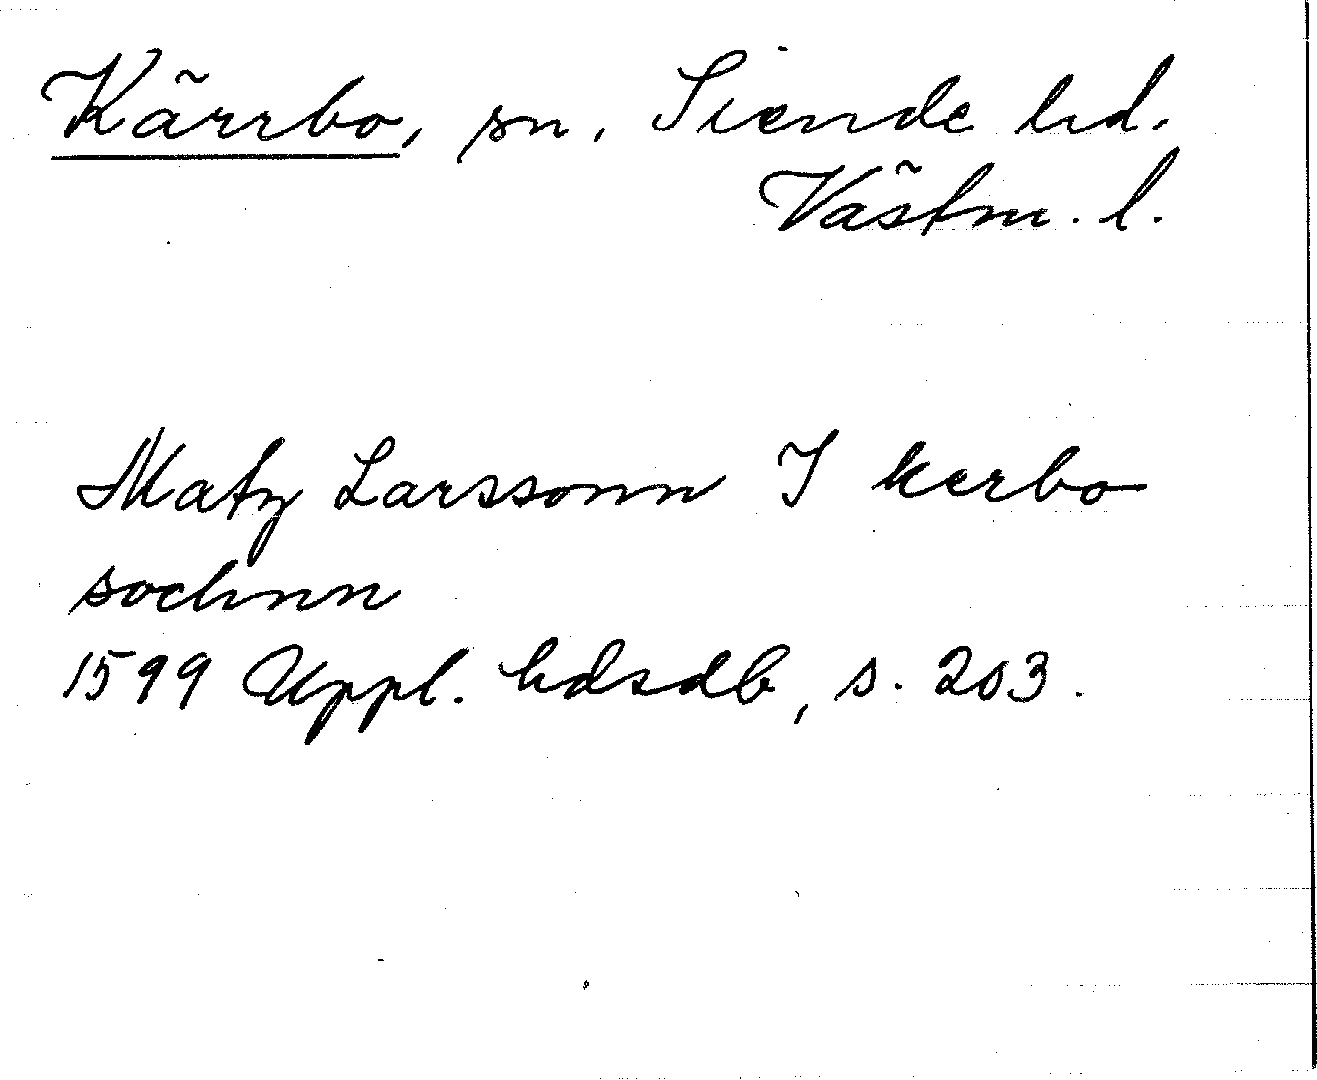 Kärrbo, sn, Siende hd.
Västm. l.
Matz Larssonn I kerbo
sochnn
1599 Uppl. hdsdb, s. 203.